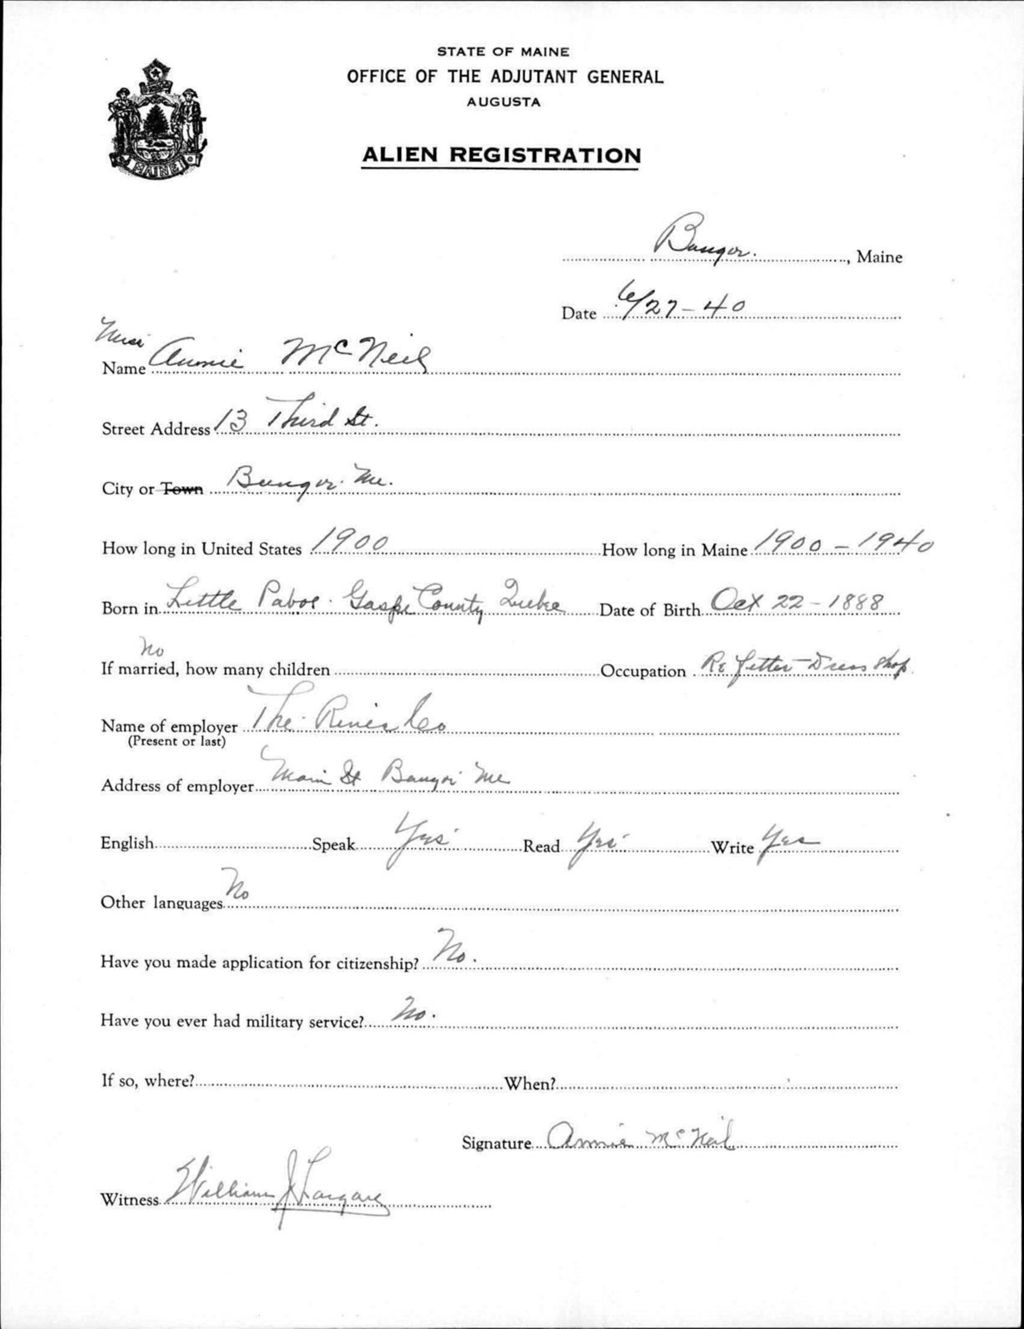 STATE OF MAINE
OFFICE OF THE ADJUTANT GENERAL
AUGUSTA
ALIEN REGISTRATION
MAINE
Bangor., Maine
Date 6/27-40
Miss
Name Annie McNeil
Street Address 13 Third St.
City or Town Bangor. Me.
How long in United States 1900 How long in Maine 1900 - 1940
Born in Little Pabos. Gaspe County Quebe Date of Birth Oct 22 - 1888
No
If married, how many children Occupation Re fitter Dress Shop.
Name of employer The Rines Co
(Present or last)
Address of employer Main St Bangor Me
English Speak Yes Read Yes Write Yes
Other languages No
Have you made application for citizenship? No.
Have you ever had military service? No.
If so, where? When?
Signature Annie McNeil
Witness William J